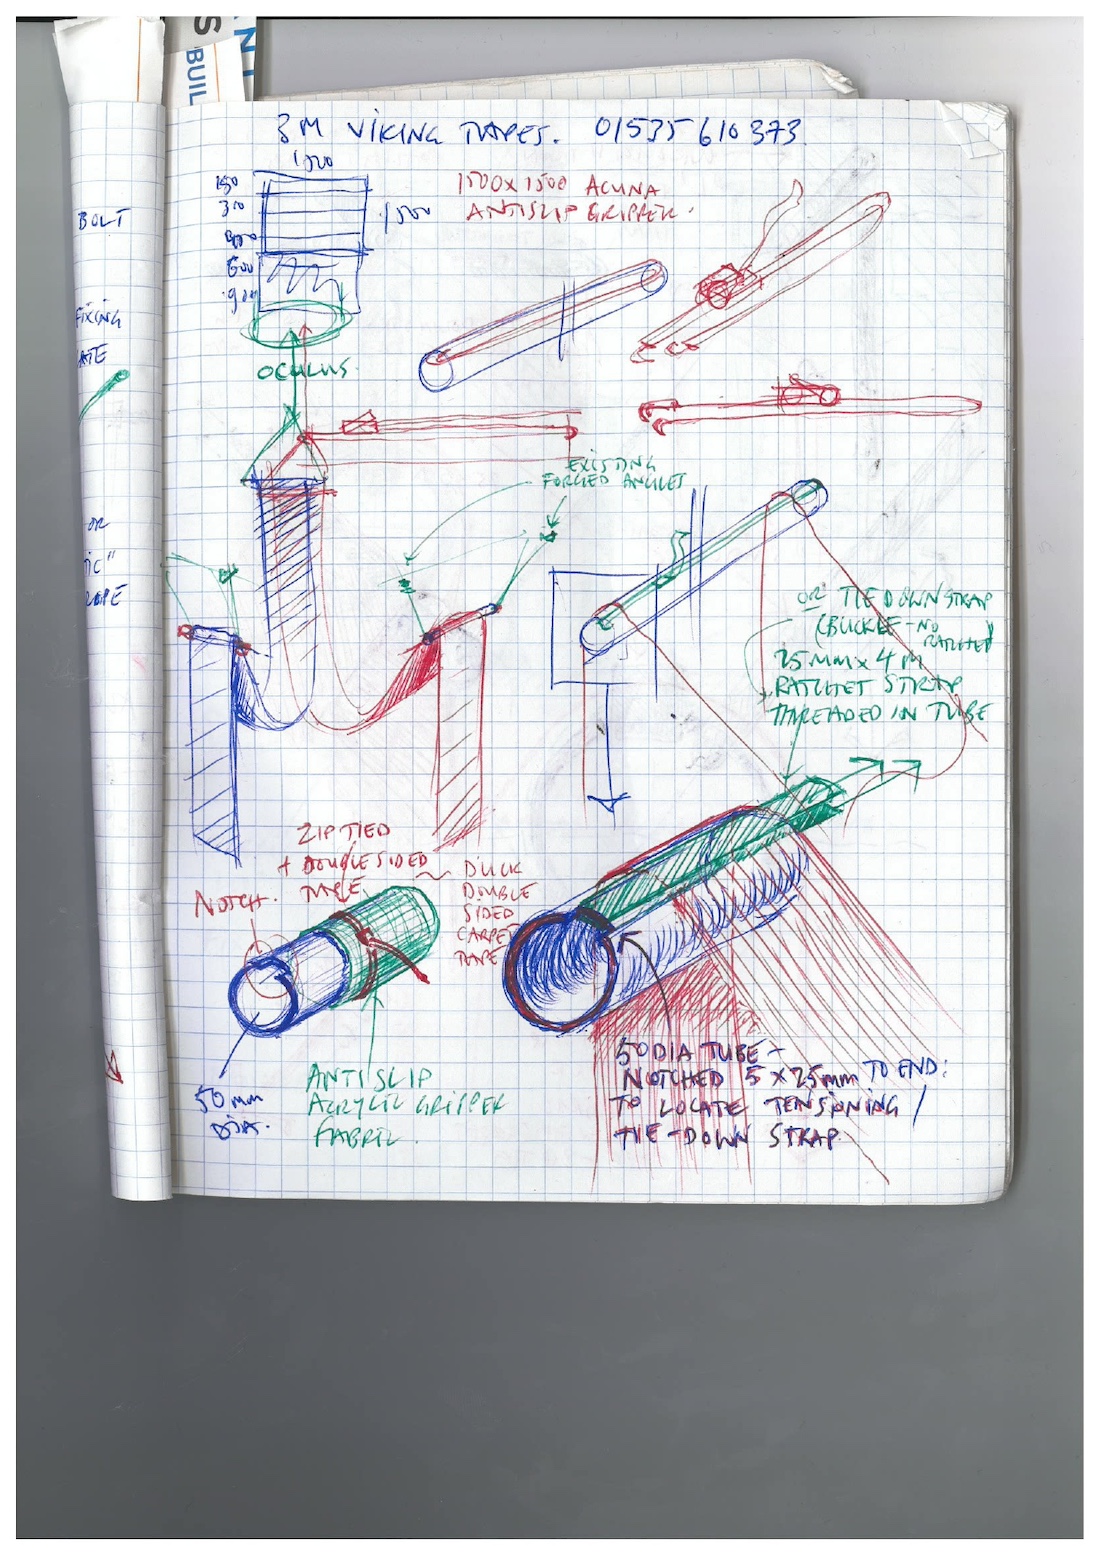 S
BUIL
NT
3M VIKING TAPES. 01535 610 373.
1500
150
300
1500
600
900
1500 x 1500 ACUNA
ANTISLIP GRIPPER.
BOLT
FIXING
ATE
OR
IC"
ROPE
OCULUS.
EXISTING
FORGED ANGLES
OR TIE DOWN STRAP
(BUCKLE - NO
RATCHET)
25MM x 4M
RATCHET STRAP
THREADED IN TUBE
ZIP TIED
+ DOUBLE SIDED
TAPE
DUCK
DOUBLE
SIDED
CARPET
TAPE
NOTCH.
50mm
DIA.
ANTISLIP
ACRYLIC GRIPPER
FABRIC.
50 DIA TUBE -
NOTCHED 5 x 25mm TO END:
TO LOCATE TENSIONING /
TIE-DOWN STRAP.